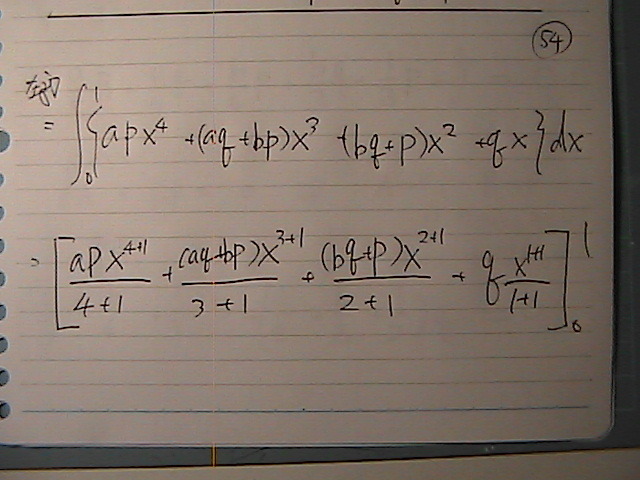 54
左辺
= ∫₀¹ {apx⁴ + (aq+bp)x³ + (bq+p)x² + qx} dx
= [apx⁴⁺¹/4+1 + (aq+bp)x³⁺¹/3+1 + (bq+p)x²⁺¹/2+1 + q x¹⁺¹/1+1]₀¹